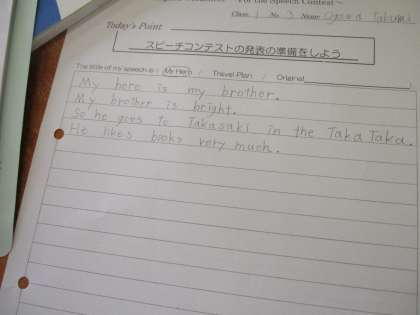 For the Speech Contest~
Class 1 No. 3 Name Ogawa Takumi
Today's Point
スピーチコンテストの発表の準備をしよう
The title of my speech is : My Hero / Travel Plan / Original
My hero is my brother.
My brother is bright.
So he goes to Takasaki in the Taka Taka.
He likes books very much.